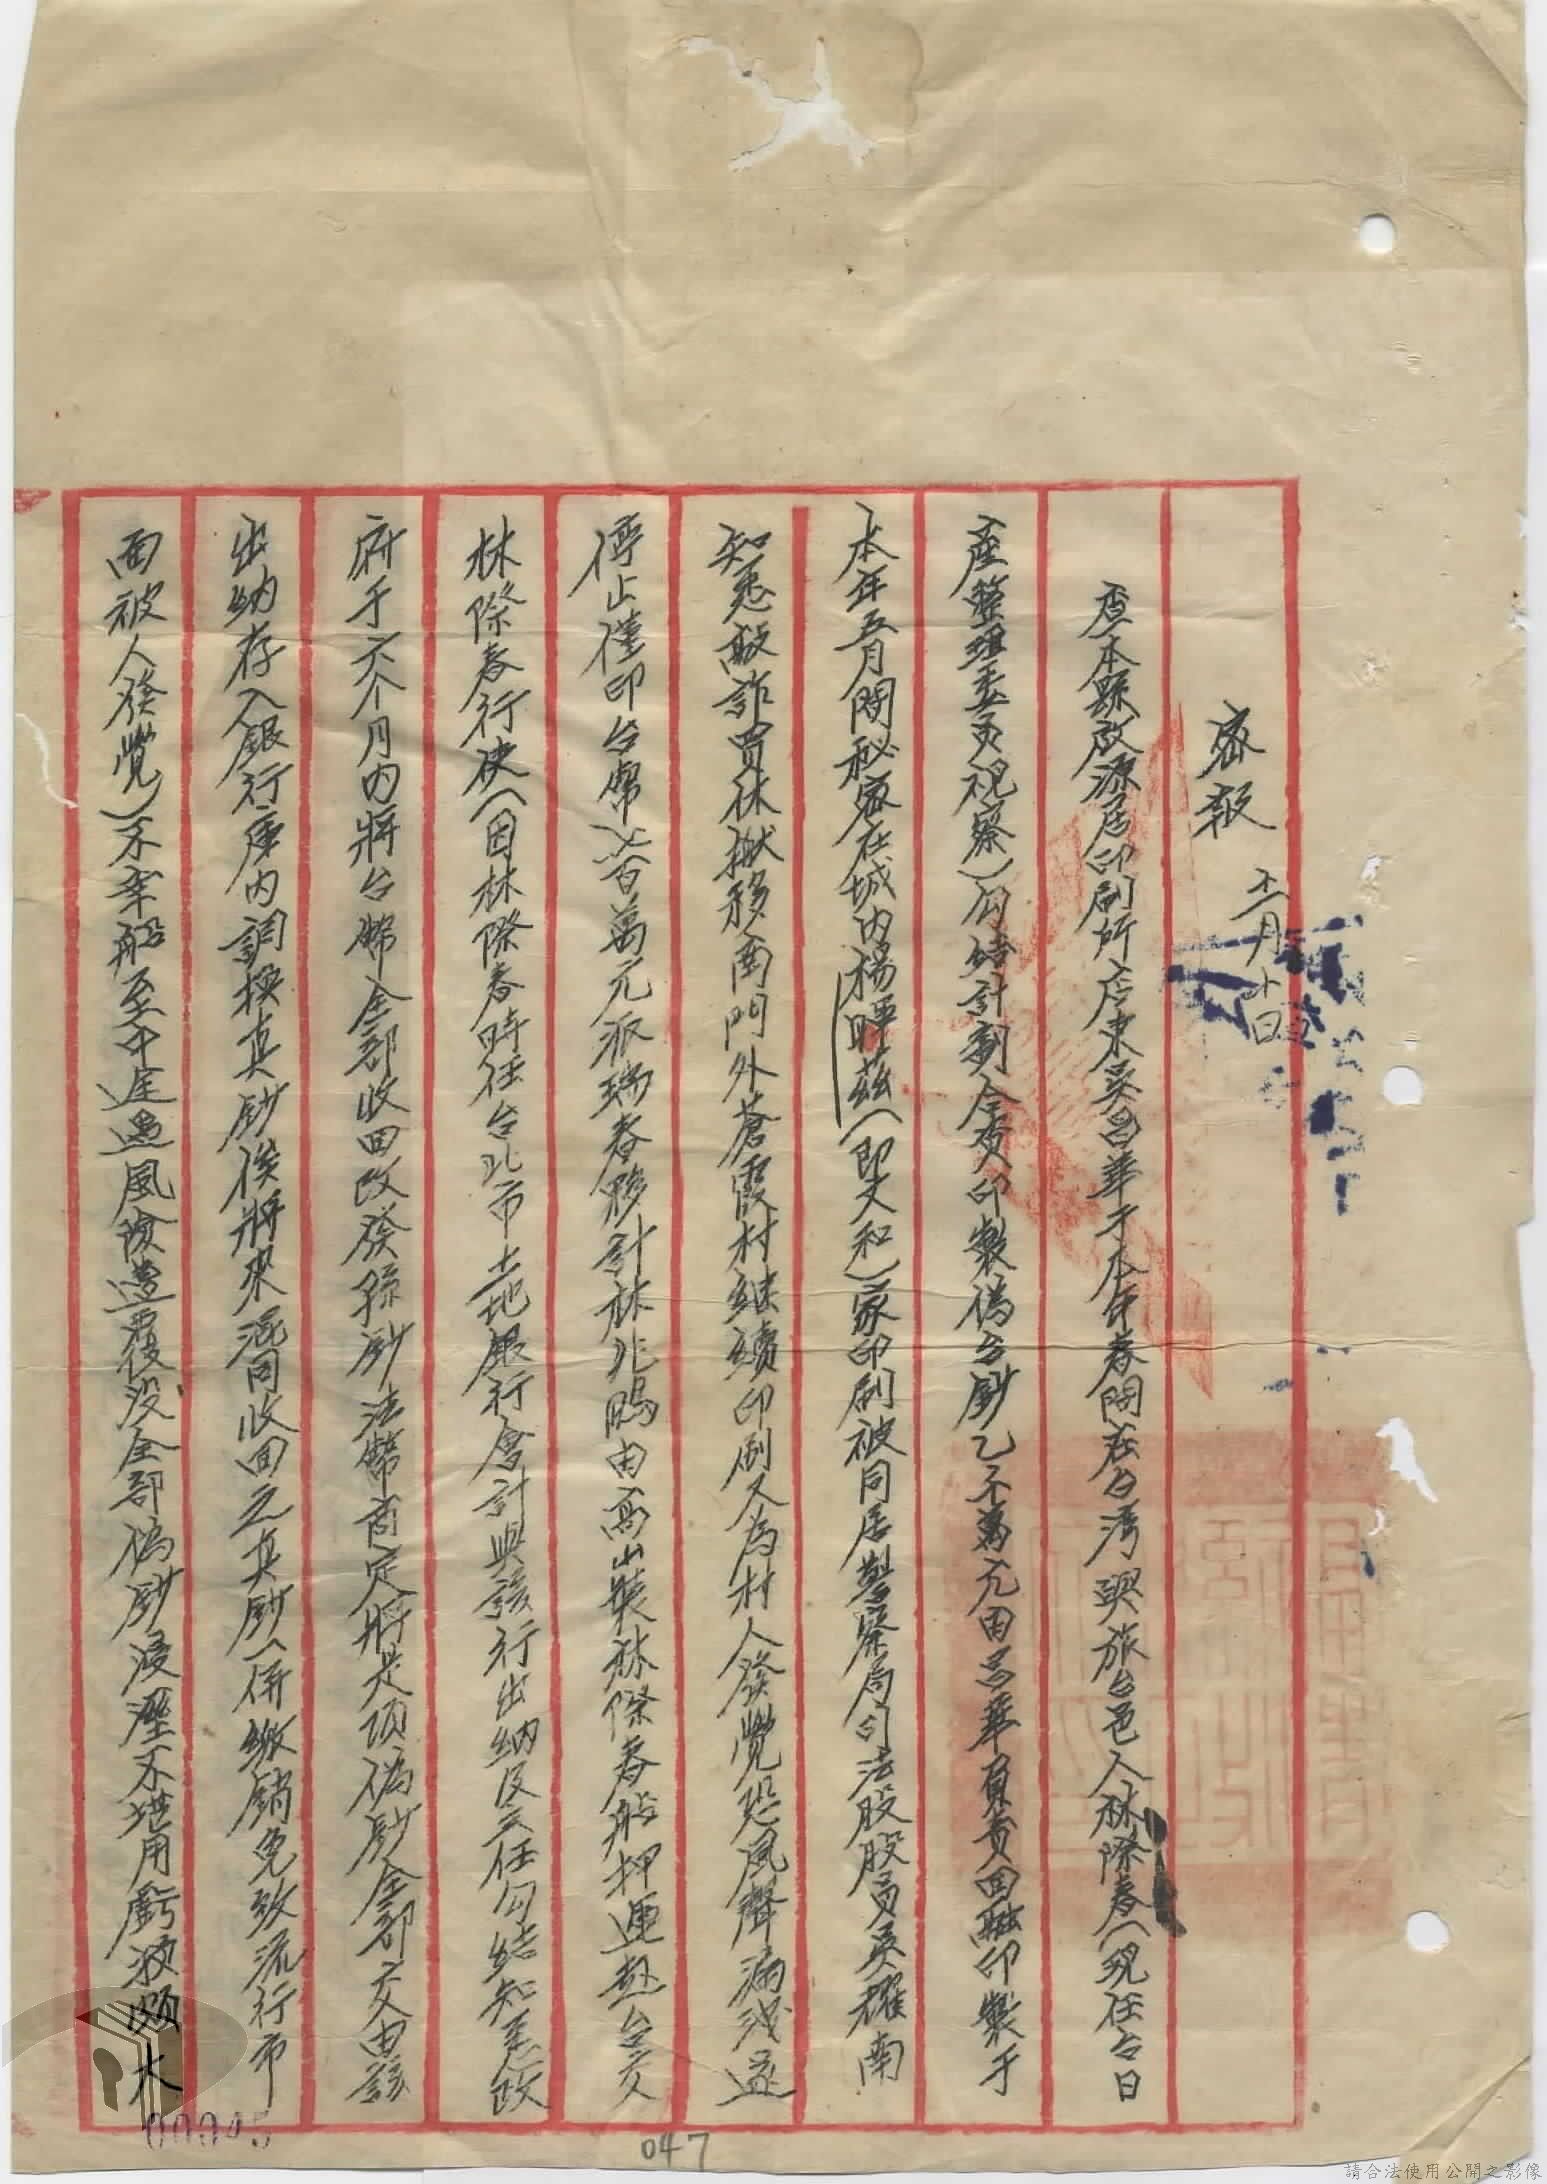 密報 十二月十日
查本縣啟源居印刷所店東吳昌華于本年春間在台灣與旅台邑人林際春(現任台日
產整理委員視察)勾結計劃合資印製偽台鈔乙千萬元由昌華負責回融印製于
本年五月間秘密在城內楊暉茲(即文和)家印刷被同居警察局司法股股員吳耀南
知悉敲詐買休搬移南門外蒼霞村継續印刷又為村人發覺恐風聲漏洩遂
停止僅印台幣弍百萬元派瑞春夥計林兆鵰由高山裝林際春船押運赴台交
林際春行使(因林際春時任台北市土地銀行會計與該行出納及主任勾結知悉政
府于六个月內將台幣全部收回改發孫鈔法幣商定將是項偽鈔全部交由該
出納存入銀行庫內調換真鈔俟將來混同收回之真鈔一併繳銷免致流行市
面被人發覺)不幸船至中途遇風險遭覆沒全部偽鈔浸溼不堪用虧殁頗大
00045
047
請合法使用公開之影像